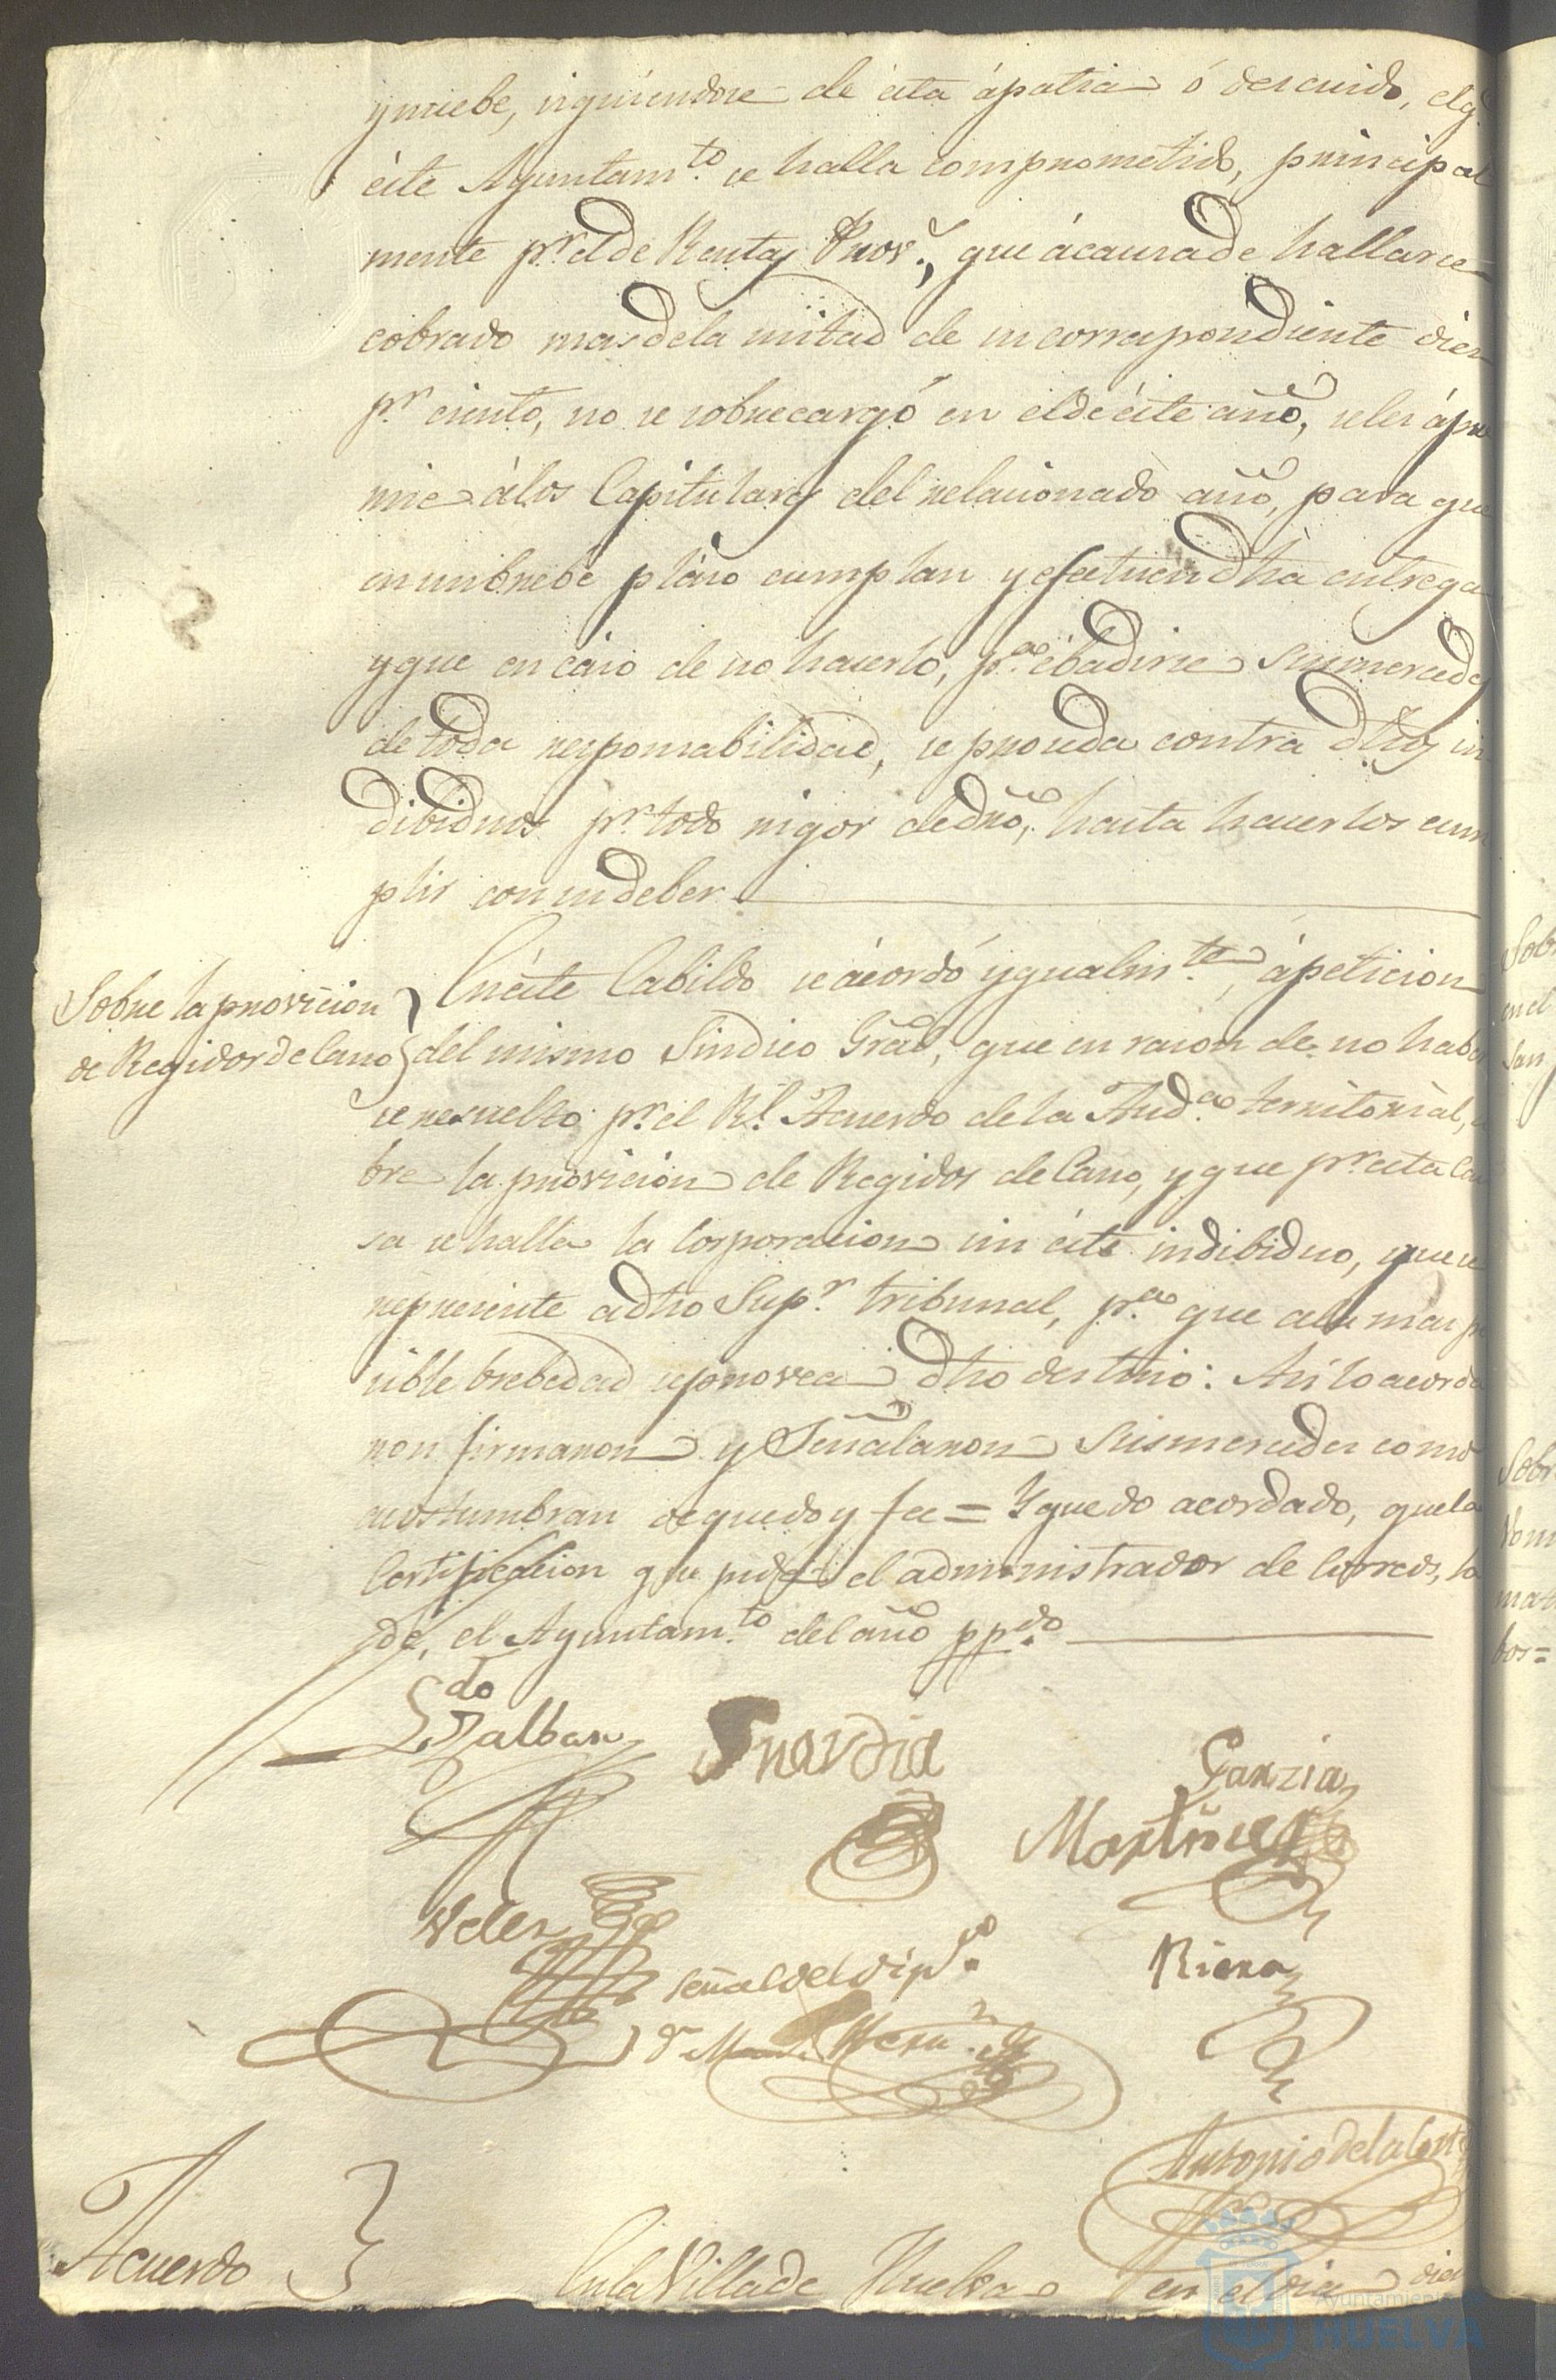 y nuebe, siguiendose de ésta ápatia ó descuido, el q.e
éste Ayuntam.to se halla comprometido, principal
mente p.r el de Rentas Prov.s, que ácausa de hallarse
cobrado mas de la mitad de su correspondiente diez
p.r ciento, no se sobrecargó en el de éste año, se les ápre
mie álos Capitulares del relacionado año, para que
en un brebe pláso cumplan y efectuen dha entrega
y que en caso de no hacerlo, p.a ebadirse sus mercedes
de toda responsabilidad, se proceda contra dhos in
dibiduos p.r todo rigor de dro, hasta hacerlos cum
plir con su deber.
Sobre la provicion
de Regidor decano
En éste Cabildo se ácordó ygualm.te, ápeticion
del mismo Sindico Gral, que en rason de no haber
se resuelto p.r el R.l Acuerdo de la Aud.a territorial, so
bre la provicion de Regidor decano, y que p.r esta cau
sa se halla la Corporacion sin éste indibiduo, que se
represente a dho Sup.r tribunal, p.a que a la mas po
sible brebedad se provea dho destino: Asi lo acorda
ron firmaron y Señalaron sus mercedes como
acostumbran de que doy fee = Y quedo acordado, que la
Certificacion que pide el administrador de Correos, la
dé, el Ayuntam.to del año pp.do
L.do Dalban
Garzia
Martinez
Velez
Señal del dip.do
Riera
Antonio de la Corte
Acuerdo
En la Villa de Huelva en el dia diez
Sobr
en el
San
Sobr
Nom
mat
bos =
Ayuntamiento de
HUELVA